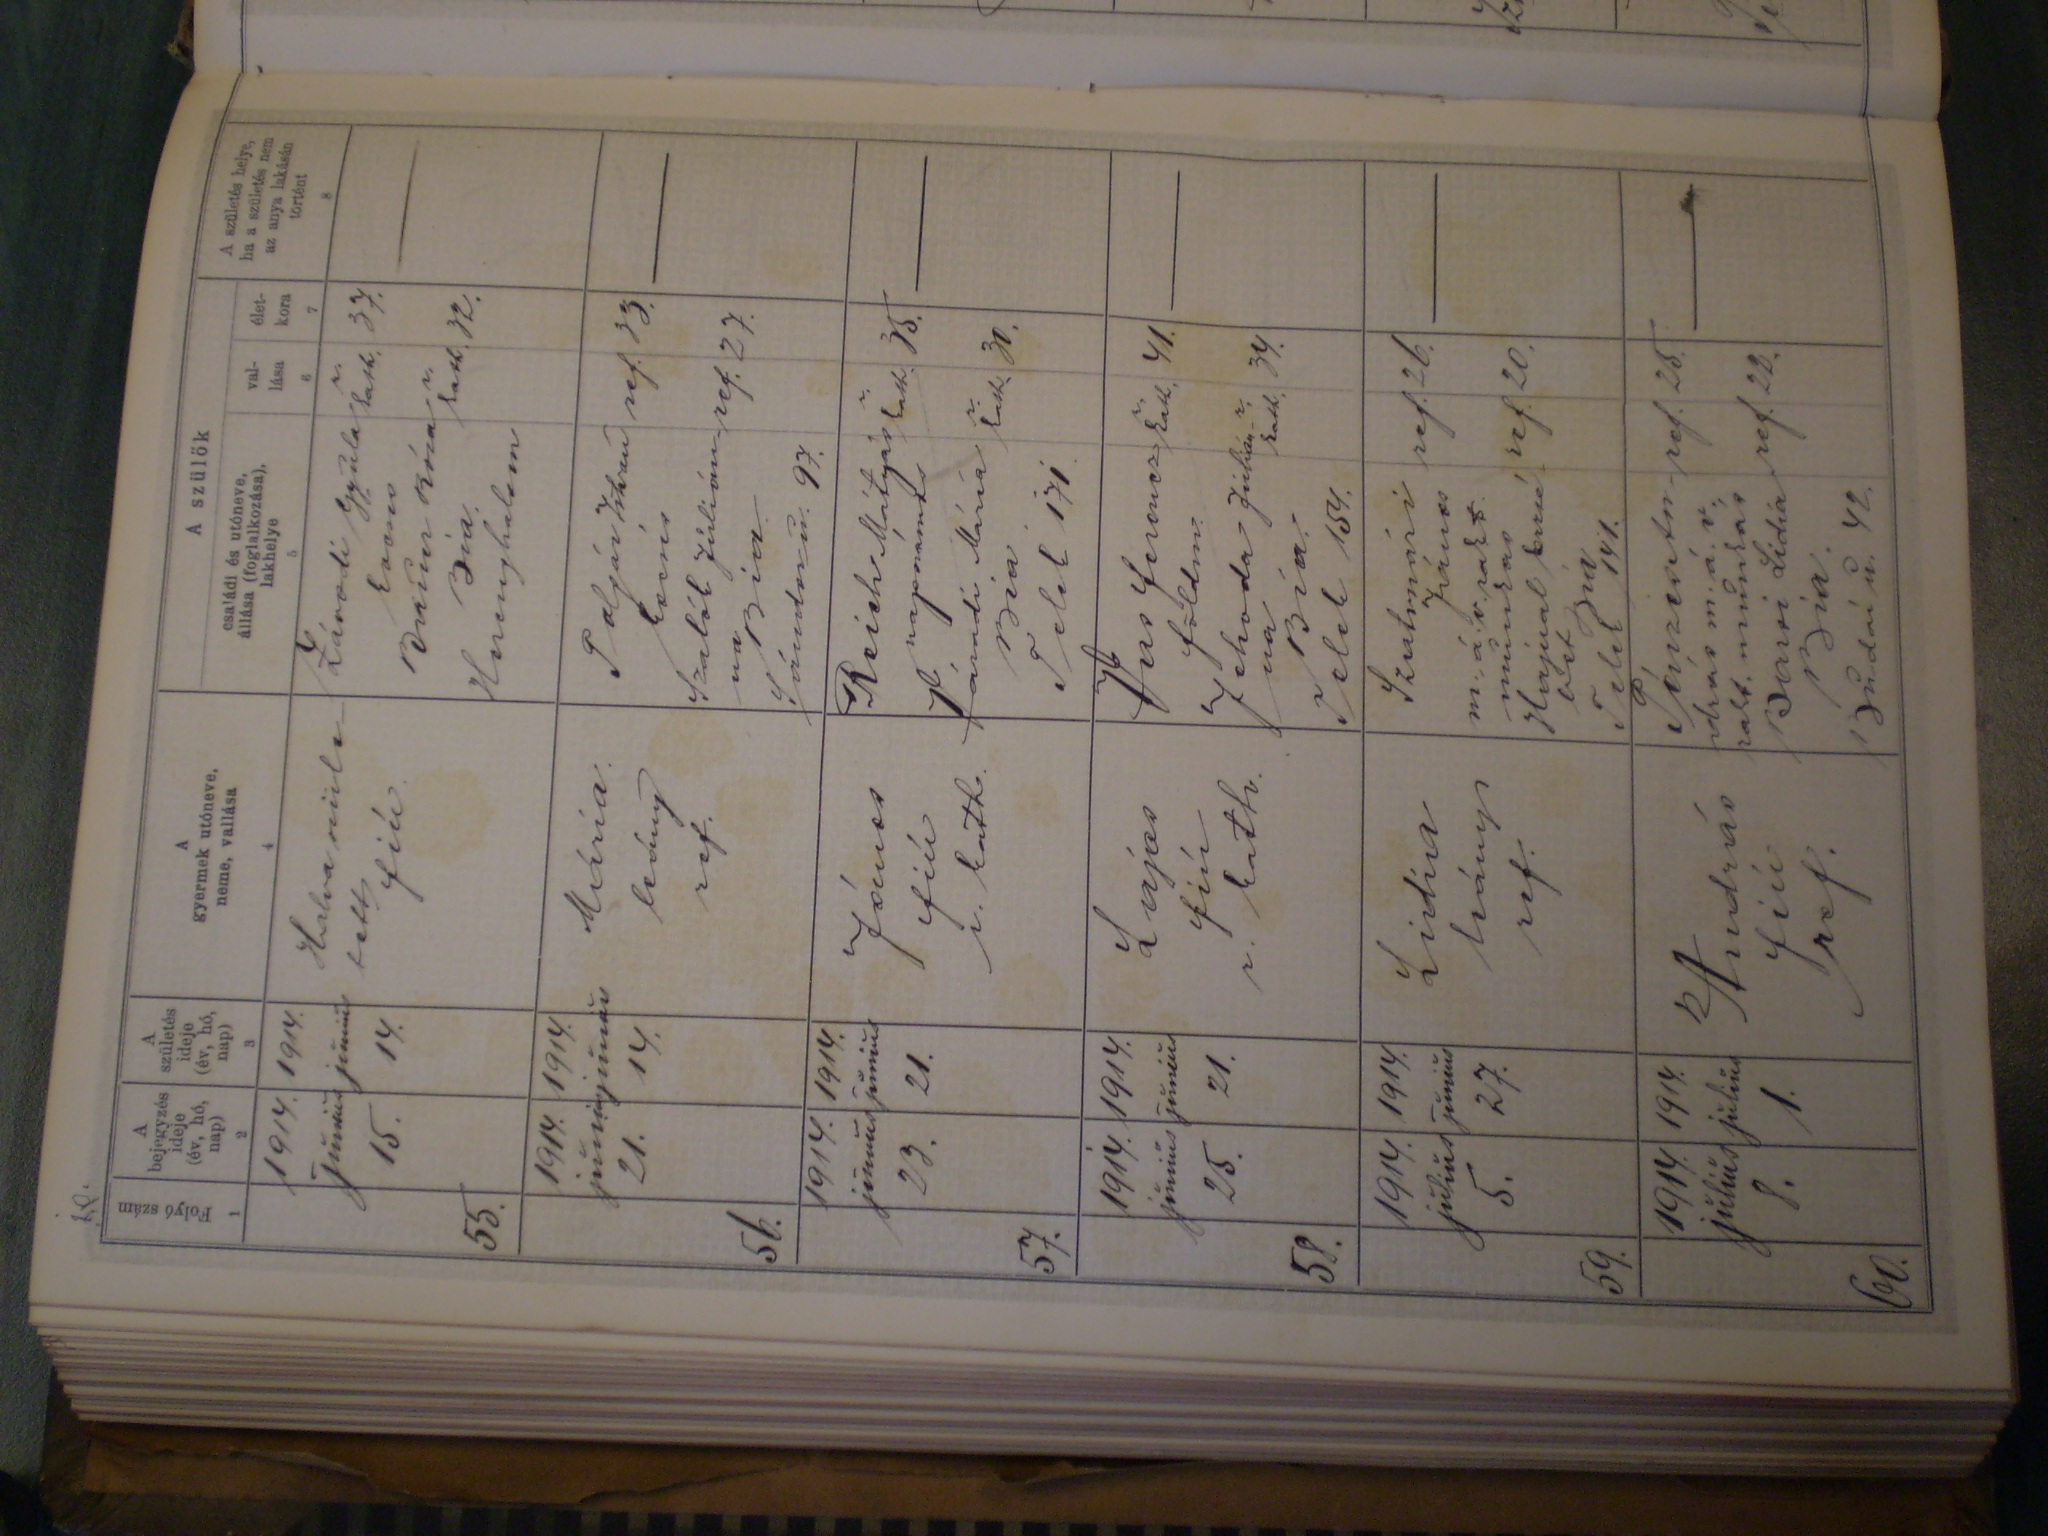 A szülők
Folyó szám
A bejegyzés ideje (év, hó, nap)
A születés ideje (év, hó, nap)
A gyermek utóneve, neme, vallása
családi és utóneve, állása (foglalkozása), lakhelye
val-
lása
élet-
kora
A születés helye, ha a születés nem az anya lakásán történt
1
2
3
4
5
6
7
8
55.
1914.
június
15.
1914.
június
14.
Halva szüle-
tett
fiú
Závodi Gyula
r. kath.
37.
Baun Róza
r. kath.
32.
Bia
Herceghalom
56.
1914.
június
21.
1914.
június
14.
Mária
leány
ref.
István
ref.
33.
Szabó Juliánna
ref.
27.
Bia
97.
57.
1914.
június
23.
1914.
június
21.
János
fiú
r. kath.
Reich Mátyás
r. kath.
35.
napszámos
Mária
r. kath.
30.
Bia
Telek 171
58.
1914.
június
25.
1914.
június
21.
Lajos
fiú
r. kath.
Ferencz
r. kath.
41.
földm.
Juliánna
r. kath.
34.
Bia
Telek 154.
59.
1914.
július
5.
1914.
június
27.
Lidia
leány
ref.
Szatmári
János
ref.
26.
m. á. v. rakt.
munkás
Hajnal Erzsébet
ref.
20.
Bia
Telek 141.
60.
1914.
július
8.
1914.
július
1.
András
fiú
ref.
ref.
25.
m. á. v.
rakt. munkás
Lidia
ref.
22.
Bia
Budai u. 42.